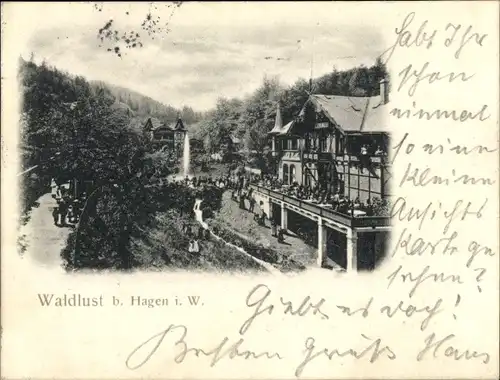 habt Ihr
schon
einmal
so eine
kleine
Ansichts
Karte ge
sehen?
Waldlust b. Hagen i. W.
Giebt es doch!
Besten Gruß Hans